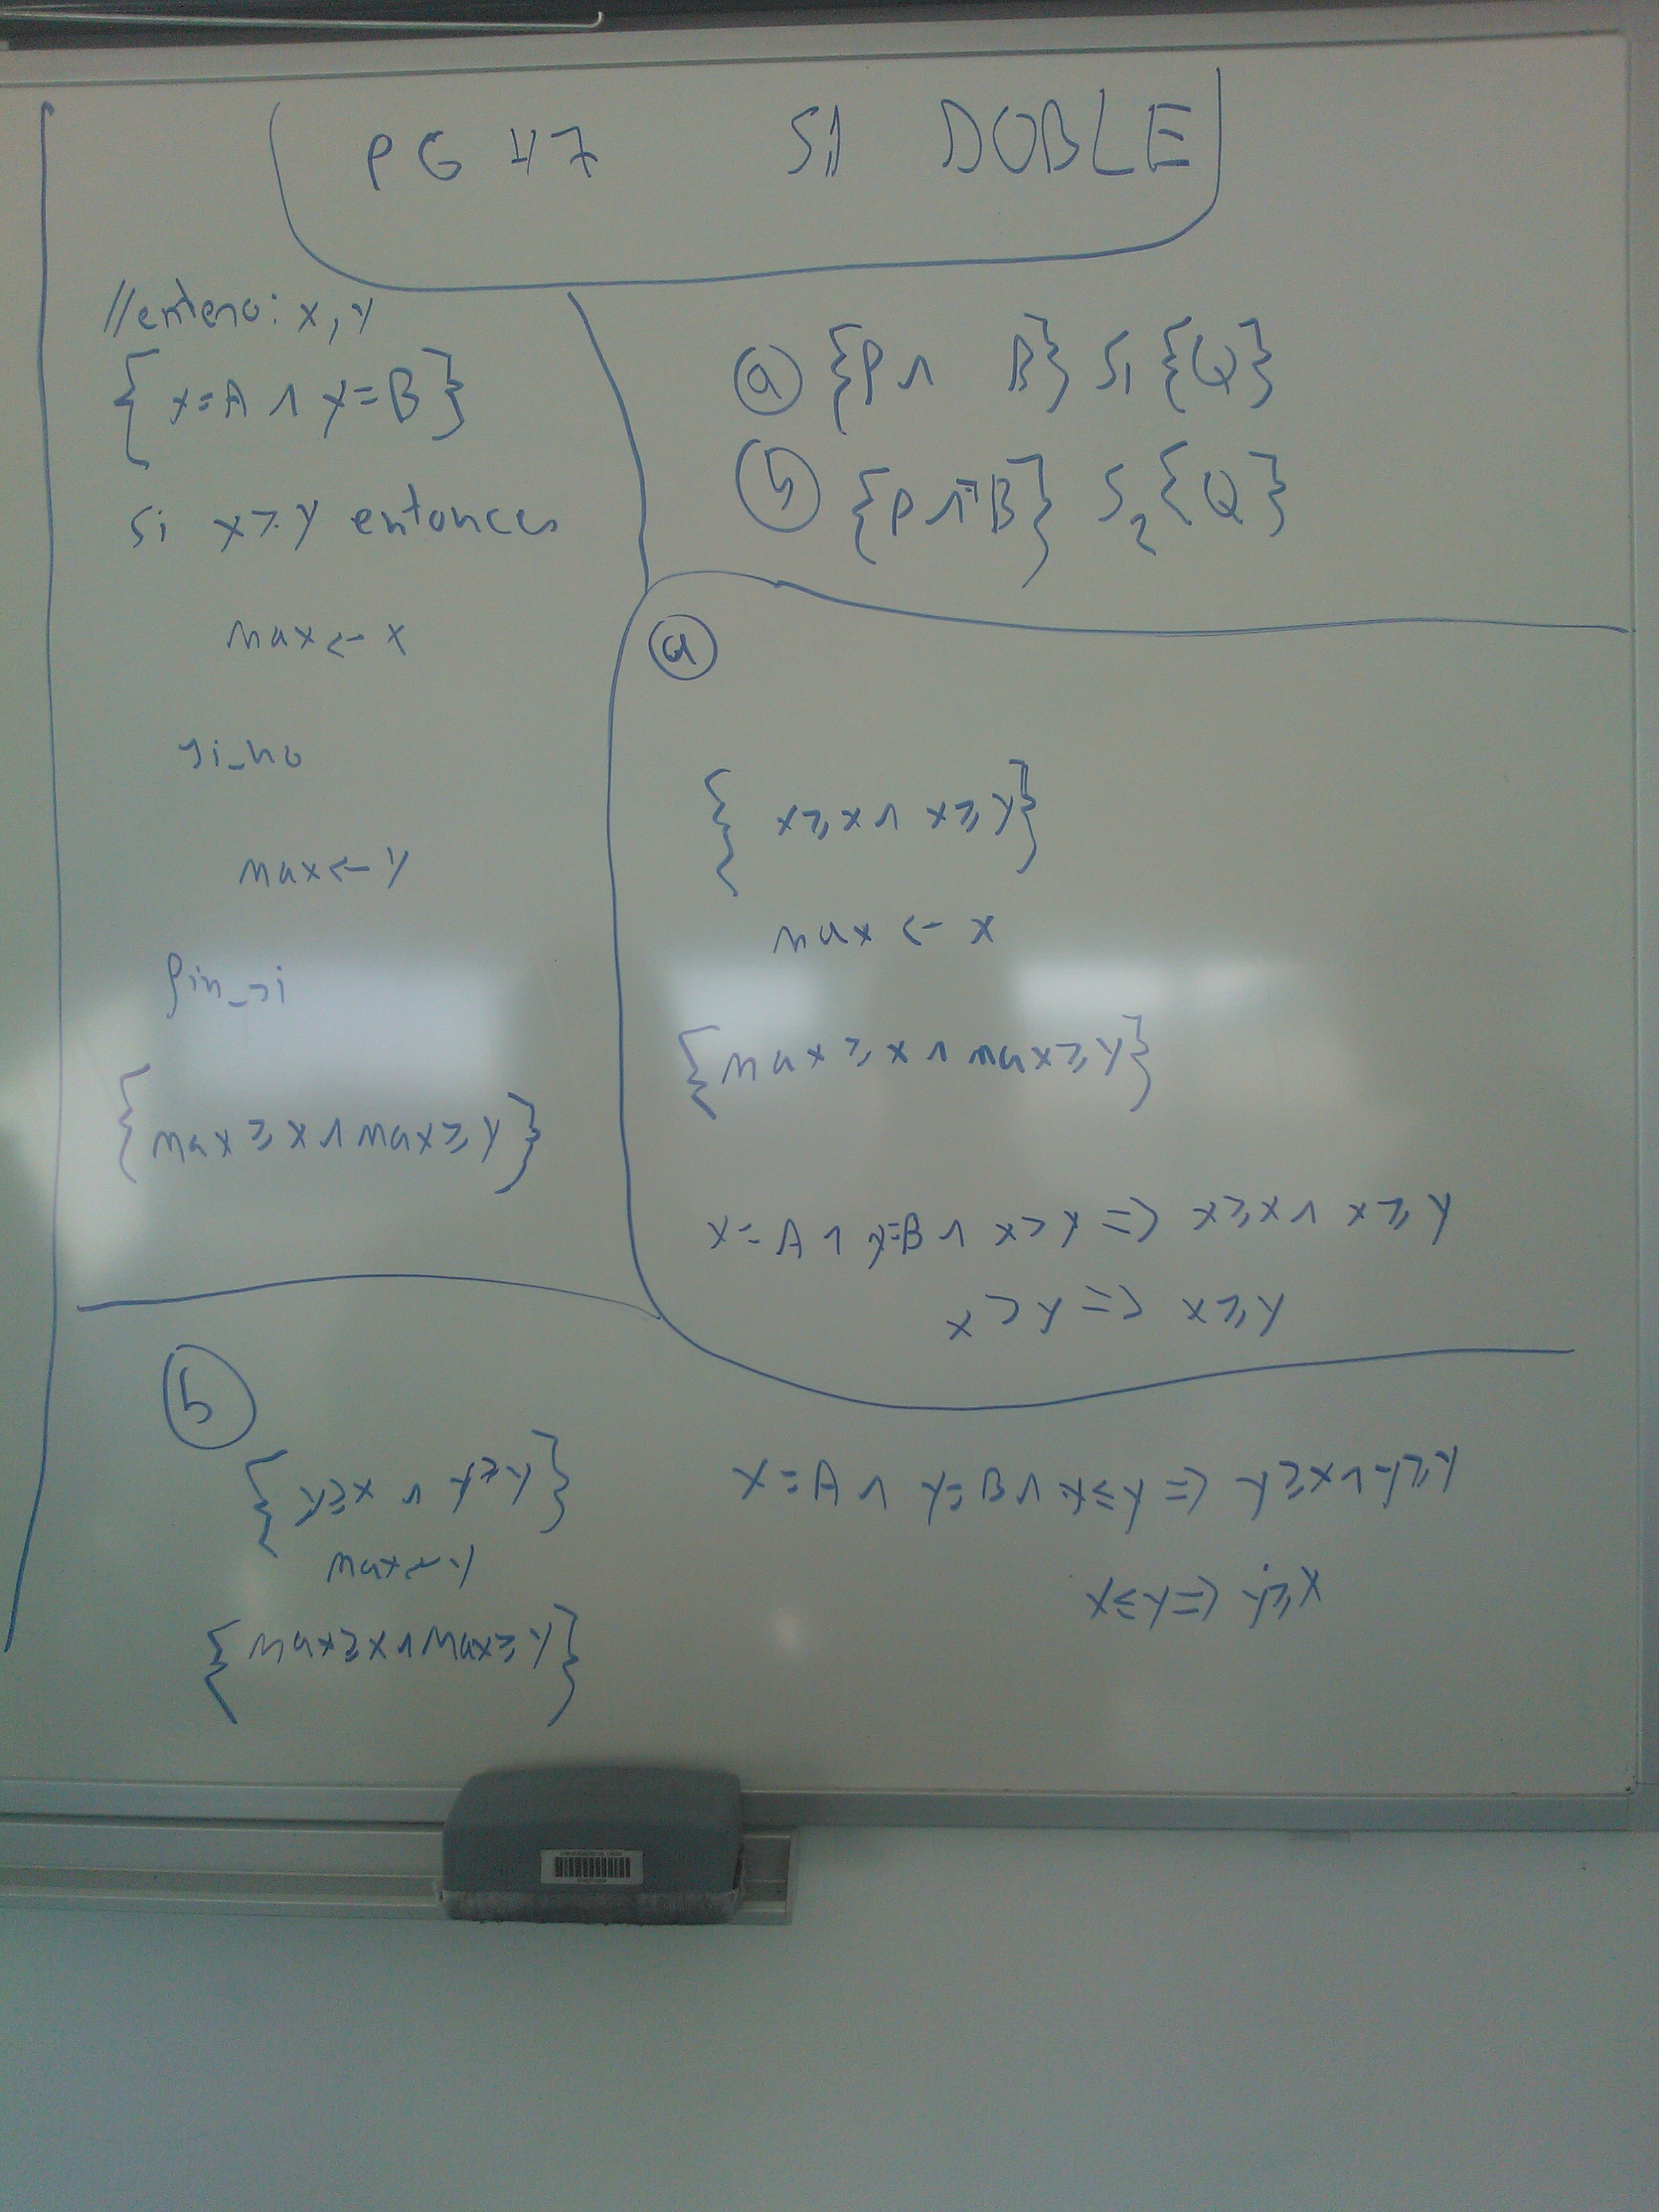 PG 47 SI DOBLE
//entero: x, y
{x=A ∧ y=B}
si x>y entonces
max ← x
si_no
max ← y
fin_si
{max ≥ x ∧ max ≥ y}
ⓐ {P ∧ B} S₁ {Q}
ⓑ {P ∧ ¬B} S₂ {Q}
ⓐ
{x ≥ x ∧ x ≥ y}
max ← x
{max ≥ x ∧ max ≥ y}
x=A ∧ y=B ∧ x>y => x ≥ x ∧ x ≥ y
x>y => x ≥ y
ⓑ
{y ≥ x ∧ y ≥ y}
max ← y
{max ≥ x ∧ max ≥ y}
x=A ∧ y=B ∧ x ≤ y => y ≥ x ∧ y ≥ y
x ≤ y => y ≥ x